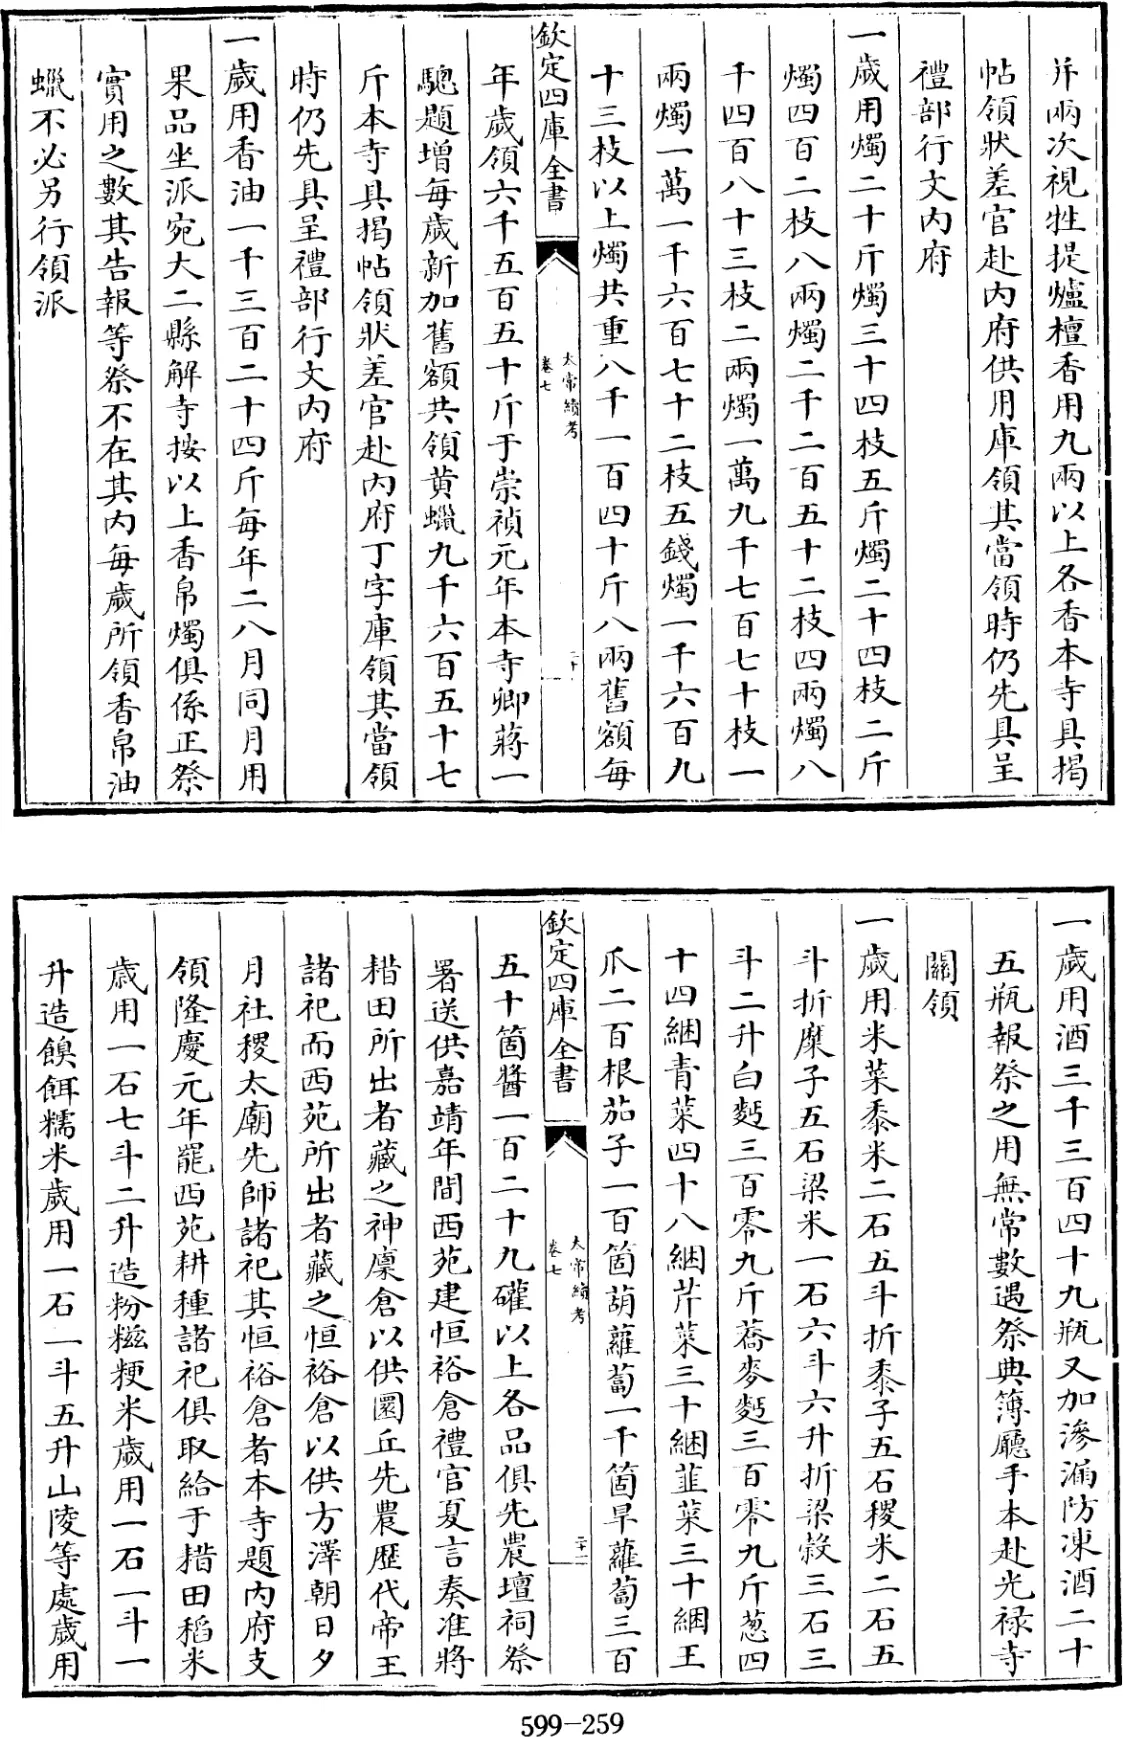 并兩次視牲提爐檀香用九兩以上各香本寺具揭
帖領狀差官赴内府供用庫領其當領時仍先具呈
禮部行文内府
一歲用燭二十斤燭三十四枝五斤燭二十四枝二斤
燭四百二枝八兩燭二千二百五十二枝四兩燭八
千四百八十三枝二兩燭一萬九千七百七十枝一
兩燭一萬一千六百七十二枝五錢燭一千六百九
十三枝以上燭共重八千一百四十斤八兩舊額每
欽定四庫全書
太常續考
卷七
二十
年歲領六千五百五十斤于崇禎元年本寺卿蔣一
驄題增每歲新加舊額共領黄蠟九千六百五十七
斤本寺具揭帖領狀差官赴内府丁字庫領其當領
時仍先具呈禮部行文内府
一歲用香油一千三百二十四斤每年二八月同月用
果品坐派宛大二縣解寺按以上香帛燭俱係正祭
實用之數其告報等祭不在其内每歲所領香帛油
蠟不必另行領派
一歲用酒三千三百四十九瓶又加滲漏防凍酒二十
五瓶報祭之用無常數遇祭典簿廳手本赴光禄寺
關領
一歲用米菜黍米二石五斗折黍子五石稷米二石五
斗折糜子五石梁米一石六斗六升折梁穀三石三
斗二升白麫三百零九斤蕎麥麫三百零九斤葱四
十四綑青菜四十八綑芹菜三十綑韮菜三十綑王
瓜二百根茄子一百箇葫蘿蔔一千箇旱蘿蔔三百
欽定四庫全書
太常續考
卷七
二十一
五十箇醬一百二十九礶以上各品俱先農壇祠祭
署送供嘉靖年間西苑建恒裕倉禮官夏言奏准將
耤田所出者藏之神廩倉以供圜丘先農歷代帝王
諸祀而西苑所出者藏之恒裕倉以供方澤朝日夕
月社稷太廟先師諸祀其恒裕倉者本寺題内府支
領隆慶元年罷西苑耕種諸祀俱取給于耤田稻米
歲用一石七斗二升造粉糍粳米歲用一石一斗一
升造餿餌糯米歲用一石一斗五升山陵等處歲用
599-259